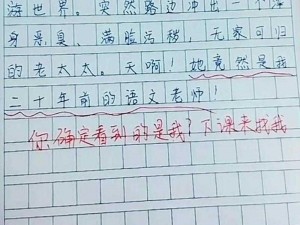 海世界。突然路边冲出一个浑
身恶臭、满脸污秽，无家可归
的老太太。天啊！她竟然是我
二十年前的语文老师！
你确定看到的是我？下课来找我